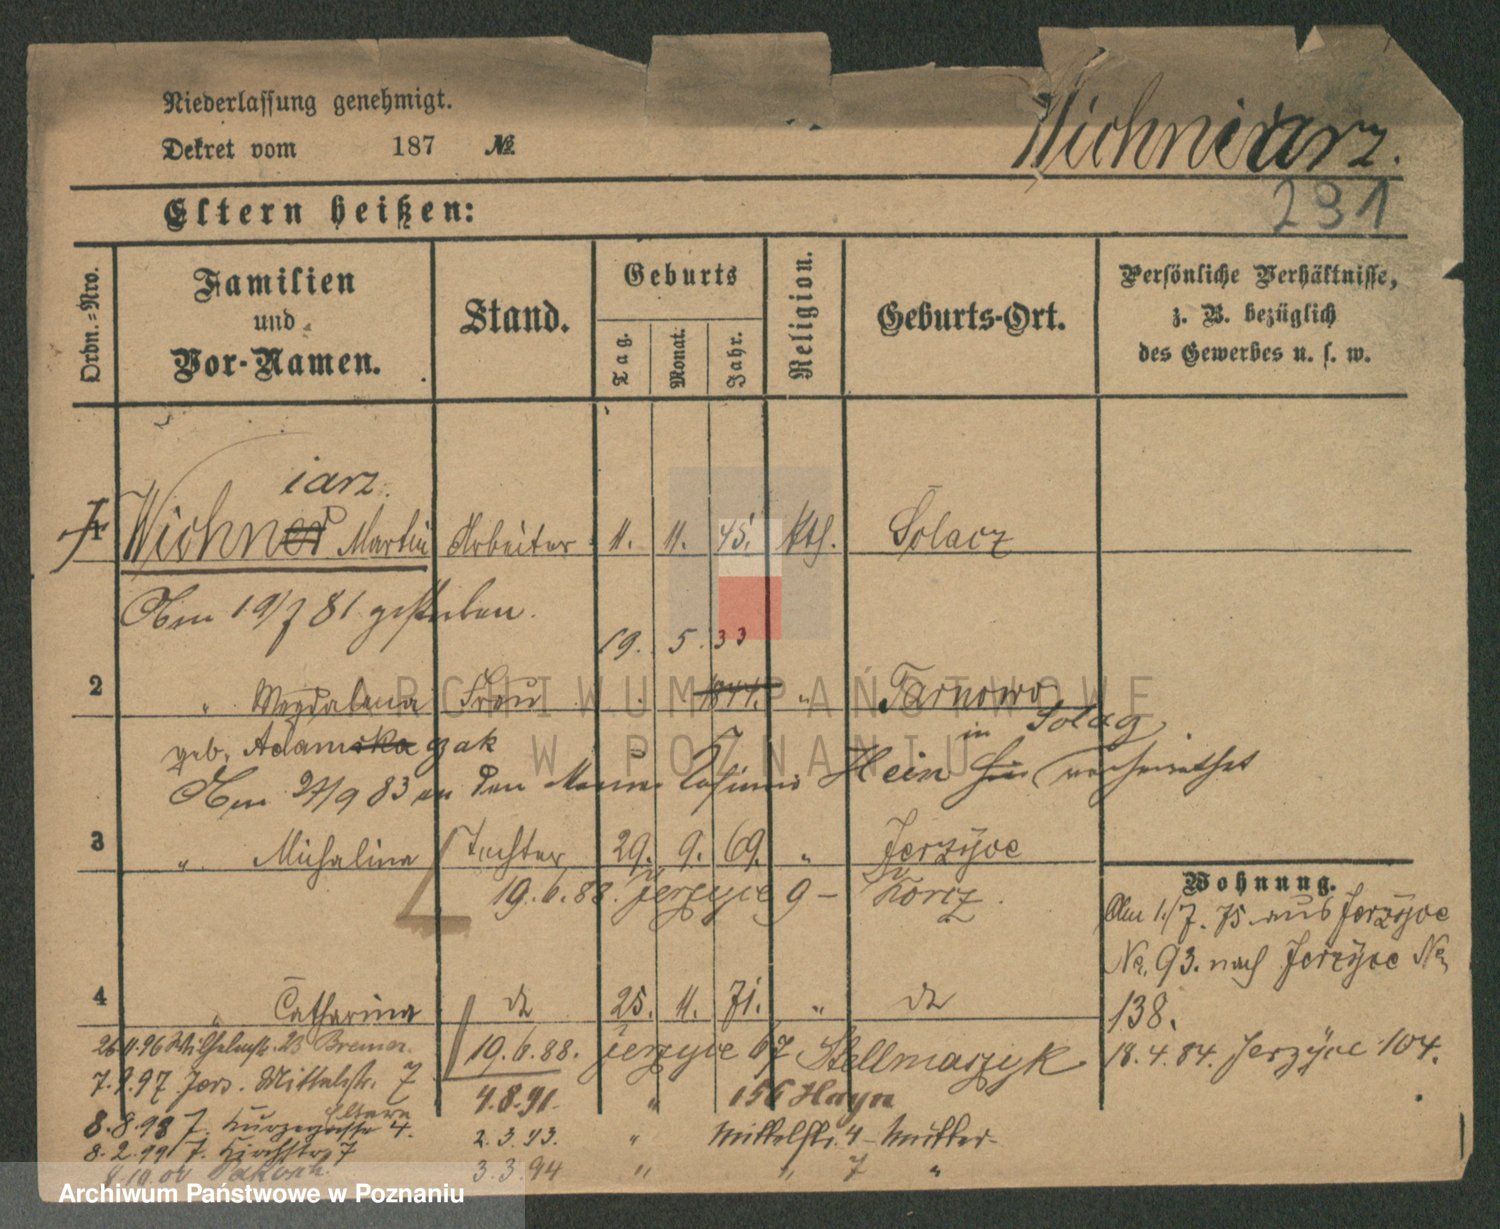 Niederlassung genehmigt.
Dekret vom 187 №
Wichniarz.
291
Eltern heißen:
Ordn.=Nro.
Familien und Vor-Namen.
Stand.
Geburts
Tag. Monat. Jahr.
Religion.
Geburts-Ort.
Persönliche Verhältnisse, z. B. bezüglich des Gewerbes u. s. w.
iarz.
1 Wichner Martin Arbeiter 11. 11. 45. kth. Solacz
Am 19/7 81 gestorben.
19. 5. 33
2 " Magdalena Frau 1841. " Tarnowo
geb. Adamska czak
in Solacz
Am 27/9 83 an den Casimir Hein verheirathet
3 " Michalina Tochter 29. 9. 69. " Jerzyce
19.6.88. Jerzyce 9 – Korcz.
Wohnung.
Am 1./7. 75. aus Jerzyce
No. 93. nach Jerzyce No
138.
18.4.84. Jerzyce 104.
4 " Catharina do 25. 11. 71. " do
26.11.96 Wilhelmstr. 23 Bremer.
19.6.88. Jerzyce 67 Stellmaszyk
7.9.97 Jers. Mittelstr. 7
4.8.91. " 156 Hayn
Eltern
8.8.98 J. Kurzegasse 4.
2.3.93. " Mittelstr. 4 – Mutter –
8.2.99 J. Kirchstr. 7
3.3.94 " " 7 "
ARCHIWUM PAŃSTWOWE
W POZNANIU
Archiwum Państwowe w Poznaniu